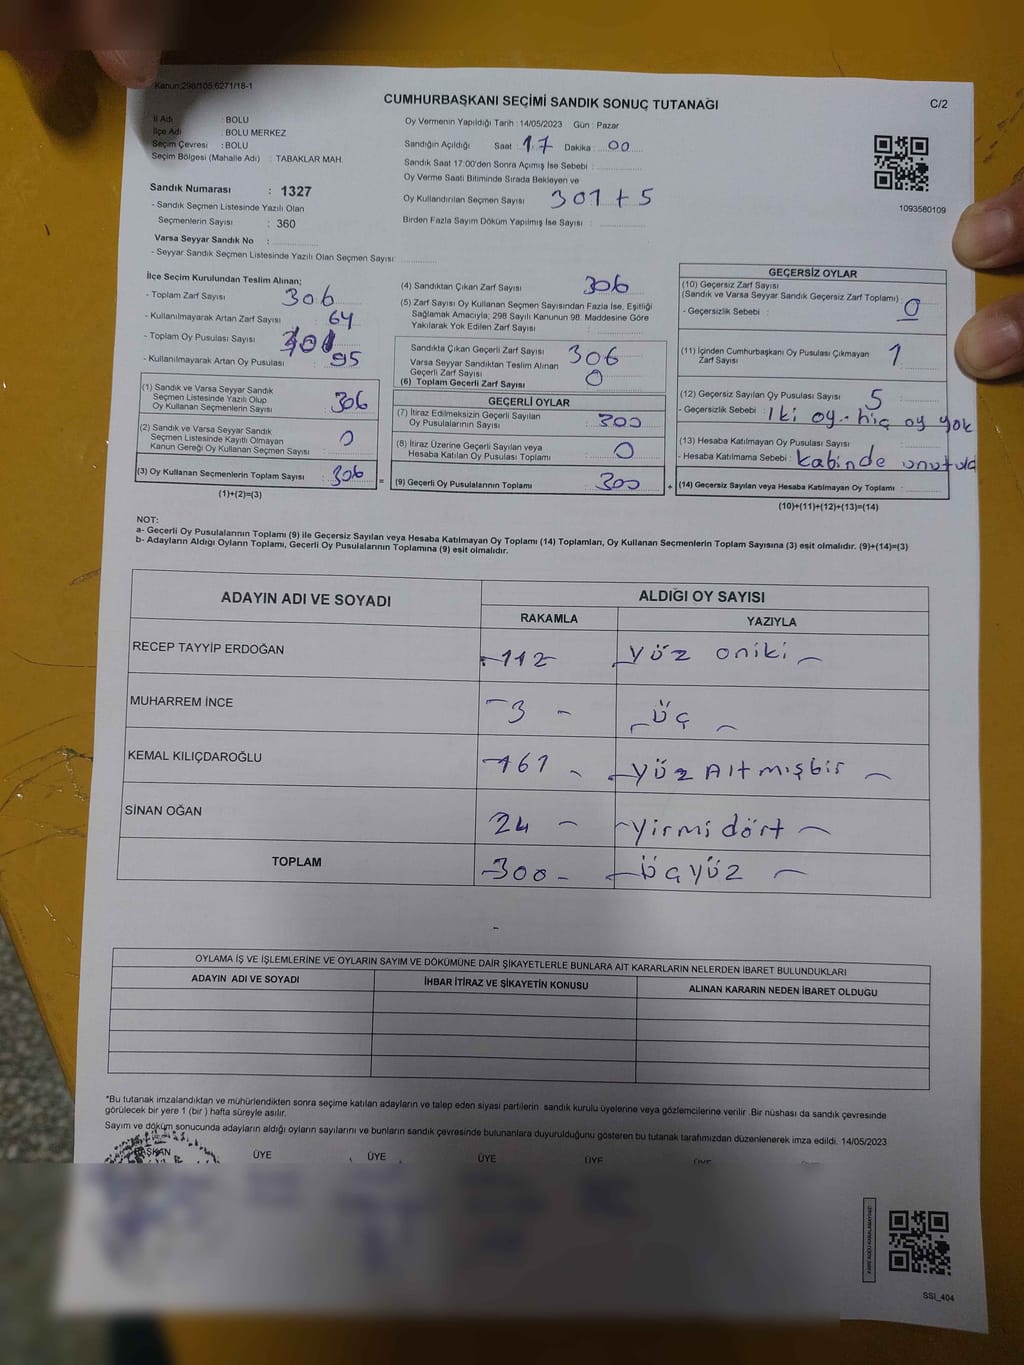 Kanun:298/105;6271/18-1
CUMHURBAŞKANI SEÇİMİ SANDIK SONUÇ TUTANAĞI
C/2
İl Adı : BOLU
İlçe Adı : BOLU MERKEZ
Seçim Çevresi : BOLU
Seçim Bölgesi (Mahalle Adı) : TABAKLAR MAH.
Sandık Numarası : 1327
- Sandık Seçmen Listesinde Yazılı Olan
Seçmenlerin Sayısı : 360
Varsa Seyyar Sandık No :
- Seyyar Sandık Seçmen Listesinde Yazılı Olan Seçmen Sayısı:
Oy Vermenin Yapıldığı Tarih : 14/05/2023 Gün : Pazar
Sandığın Açıldığı Saat : 17 Dakika : 00
Sandık Saat 17:00'den Sonra Açımış İse Sebebi :
Oy Verme Saati Bitiminde Sırada Bekleyen ve
Oy Kullandırılan Seçmen Sayısı 301 + 5
Birden Fazla Sayım Döküm Yapılmış İse Sayısı :
1093580109
İlçe Seçim Kurulundan Teslim Alınan;
- Toplam Zarf Sayısı 306
- Kullanılmayarak Artan Zarf Sayısı : 64
- Toplam Oy Pusulası Sayısı
- Kullanılmayarak Artan Oy Pusulası : 95
(1) Sandık ve Varsa Seyyar Sandık
Seçmen Listesinde Yazılı Olup
Oy Kullanan Seçmenlerin Sayısı : 306
(2) Sandık ve Varsa Seyyar Sandık
Seçmen Listesinde Kayıtlı Olmayan
Kanun Gereği Oy Kullanan Seçmen Sayısı : 0
(3) Oy Kullanan Seçmenlerin Toplam Sayısı : 306
(1)+(2)=(3)
(4) Sandıktan Çıkan Zarf Sayısı : 306
(5) Zarf Sayısı Oy Kullanan Seçmen Sayısından Fazla İse, Eşitliği
Sağlamak Amacıyla; 298 Sayılı Kanunun 98. Maddesine Göre
Yakılarak Yok Edilen Zarf Sayısı :
Sandıkta Çıkan Geçerli Zarf Sayısı 306
Varsa Seyyar Sandıktan Teslim Alınan
Geçerli Zarf Sayısı 0
(6) Toplam Geçerli Zarf Sayısı :
GEÇERLİ OYLAR
(7) İtiraz Edilmeksizin Geçerli Sayılan
Oy Pusulalarının Sayısı : 300
(8) İtiraz Üzerine Geçerli Sayılan veya
Hesaba Katılan Oy Pusulası Toplamı : 0
= (9) Geçerli Oy Pusulalarının Toplamı : 300 +
GEÇERSİZ OYLAR
(10) Geçersiz Zarf Sayısı
(Sandık ve Varsa Seyyar Sandık Geçersiz Zarf Toplamı) : 0
- Geçersizlik Sebebi :
(11) İçinden Cumhurbaşkanı Oy Pusulası Çıkmayan
Zarf Sayısı 1
(12) Geçersiz Sayılan Oy Pusulası Sayısı : 5
- Geçersizlik Sebebi : İki oy - hiç oy yok
(13) Hesaba Katılmayan Oy Pusulası Sayısı :
- Hesaba Katılmama Sebebi : Kabinde
(14) Geçersiz Sayılan veya Hesaba Katılmayan Oy Toplamı :
(10)+(11)+(12)+(13)=(14)
NOT:
a- Geçerli Oy Pusulalarının Toplamı (9) ile Geçersiz Sayılan veya Hesaba Katılmayan Oy Toplamı (14) Toplamları, Oy Kullanan Seçmenlerin Toplam Sayısına (3) eşit olmalıdır. (9)+(14)=(3)
b- Adayların Aldığı Oyların Toplamı, Geçerli Oy Pusulalarının Toplamına (9) eşit olmalıdır.
ADAYIN ADI VE SOYADI
ALDIĞI OY SAYISI
RAKAMLA YAZIYLA
RECEP TAYYİP ERDOĞAN - 112 - yüz oniki -
MUHARREM İNCE - 3 - - üç -
KEMAL KILIÇDAROĞLU - 161 - - yüz Altmışbir -
SİNAN OĞAN 24 - - yirmi dört -
TOPLAM - 300 - - üçyüz -
OYLAMA İŞ VE İŞLEMLERİNE VE OYLARIN SAYIM VE DÖKÜMÜNE DAİR ŞİKAYETLERLE BUNLARA AİT KARARLARIN NELERDEN İBARET BULUNDUKLARI
ADAYIN ADI VE SOYADI İHBAR İTİRAZ VE ŞİKAYETİN KONUSU ALINAN KARARIN NEDEN İBARET OLDUĞU
*Bu tutanak imzalandıktan ve mühürlendikten sonra seçime katılan adayların ve talep eden siyasi partilerin sandık kurulu üyelerine veya gözlemcilerine verilir. Bir nüshası da sandık çevresinde
görülecek bir yere 1 (bir) hafta süreyle asılır.
Sayım ve döküm sonucunda adayların aldığı oyların sayılarını ve bunların sandık çevresinde bulunanlara duyurulduğunu gösteren bu tutanak tarafımızdan düzenlenerek imza edildi. 14/05/2023
BAŞKAN ÜYE ÜYE ÜYE ÜYE ÜYE
SSİ_404